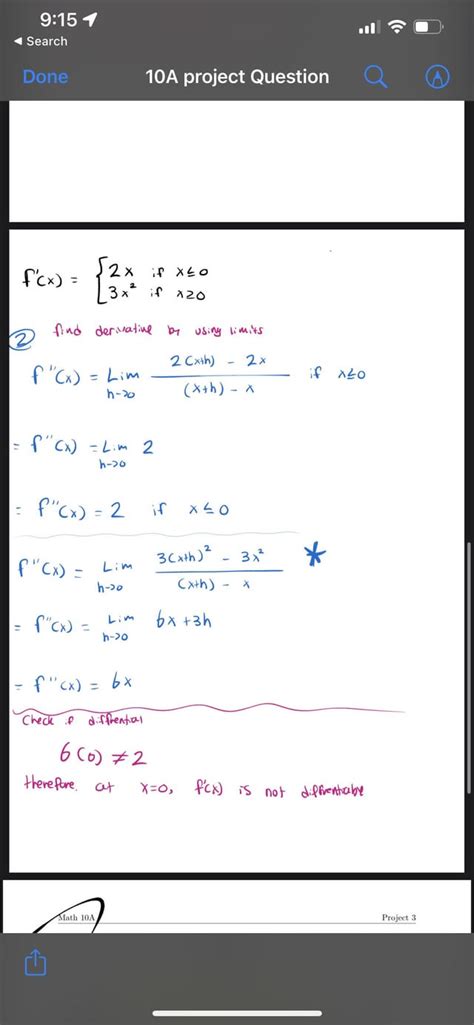 9:15
◀ Search
Done 10A project Question
f'(x) = { 2x if x≤0
3x² if x≥0
② find derivative by using limits
f''(x) = Lim h->0 2(x+h) - 2x / (x+h) - x if x≤0
= f''(x) = Lim h->0 2
= f''(x) = 2 if x≤0
f''(x) = Lim h->0 3(x+h)² - 3x² / (x+h) - x *
= f''(x) = Lim h->0 6x+3h
= f''(x) = 6x
Check if diffrential
6(0) ≠ 2
therefore. at x=0, f'(x) is not diffrentiable
Math 10A Project 3